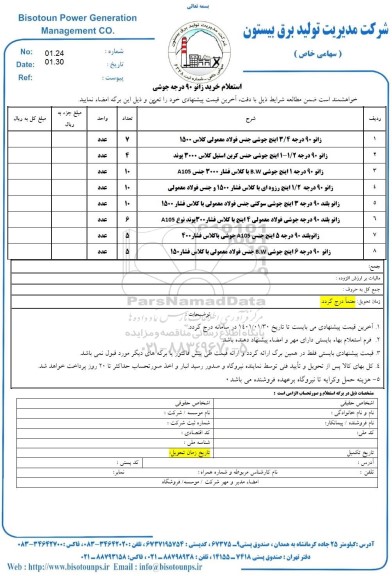 بسمه تعالی
Bisotoun Power Generation
Management CO.
شرکت مدیریت تولید برق بیستون
( سهامی خاص )
No: 01.24 شماره :
Date: 01.30 تاریخ :
پیوست :
استعلام خرید زانو ۹۰ درجه جوشی
خواهشمند است ضمن مطالعه شرایط ذیل با دقت، آخرین قیمت پیشنهادی خود را تعیین و ذیل این برگه امضاء نمایید.
ردیف شرح تعداد واحد مبلغ جزء به ریال مبلغ کل به ریال
۱ زانو ۹۰ درجه ۳/۴ اینچ جوشی جنس فولاد معمولی کلاس ۱۵۰۰ ۷ عدد
۲ زانو ۹۰ درجه ۱/۲-۱ اینچ جوشی جنس کربن استیل کلاس ۳۰۰۰ پوند ۴ عدد
۳ زانو ۹۰ درجه ۱ اینچ جوشی B.W با کلاس فشار ۳۰۰۰ جنس A105 ۱۰ عدد
۴ زانو ۹۰ درجه ۱/۲ اینچ رزوه ای با کلاس فشار ۱۵۰۰ و جنس فولاد معمولی ۱۰ عدد
۵ زانو بلند ۹۰ درجه ۳ اینچ جوشی سوکتی جنس فولاد معمولی با کلاس فشار ۱۵۰۰ ۱۰ عدد
۶ زانو بلند ۹۰ درجه جوشی فولاد معمولی ۴ اینچ با کلاس فشار ۳۰۰پوند نوع A105 ۶ عدد
۷ زانوبلند ۹۰ درجه ۵ اینچ جنس A105 جوشی باکلاس فشار۴۰۰ ۵ عدد
۸ زانو بلند ۹۰ درجه ۶ اینچ B.W جنس فولاد معمولی با کلاس فشار۱۵۰ ۵ عدد
جمع:
مالیات بر ارزش افزوده :
جمع کل به حروف :
زمان تحویل: حتماً درج گردد
توضیحات:
۱. آخرین قیمت پیشنهادی می بایست تا تاریخ ۱۴۰۱/۰۱/۳۰ در سامانه درج گردد.
۲. فرم استعلام بهاء بایستی دارای مهر و امضاء پیشنهاد دهنده باشد.
۳. قیمت پیشنهادی بایستی فقط در همین برگه ارائه گردد و ارائه قیمت طی پیش فاکتور یا برگه های دیگر مورد قبول نمی باشد.
۴. کل بهای کالا پس از تحویل و تأیید فنی توسط نماینده نیروگاه و صدور رسید انبار و اخذ صورتحساب حداکثر تا ۲۰ روز پرداخت خواهد شد.
۵- هزینه حمل وکرایه تا نیروگاه برعهده فروشنده می باشد .
ParsNamadData
۰۲۱-۸۸۳۴۹۶۷۰-۵
مشخصات ذیل در برگه استعلام و صورتحساب الزامی است :
اشخاص حقیقی اشخاص حقوقی
نام و نام خانوادگی : نام موسسه / شرکت :
نام فروشنده / پیمانکار: شماره ثبت شرکت :
کد ملی: کد اقتصادی :
شناسه ملی :
تاریخ تکمیل تاریخ/ زمان تحویل:
آدرس : کد پستی :
تلفن : نام کارشناس مربوطه و شماره همراه : نمابر:
امضاء مدیر و مهر شرکت / موسسه/ فروشگاه
آدرس: کیلومتر ۲۵ جاده کرمانشاه به همدان ، صندوق پستی۹ـ ۶۷۳۷۵ ، کدپستی: ۶۷۳۷۱۹۵۷۵۴ تلفن: ۳۴۶۴۲۰۲۰-۰۸۳ فاکس: ۳۴۶۴۲۷۰۰-۰۸۳
Web : http://www.bisotounps.ir Email : info@bisotounps.ir